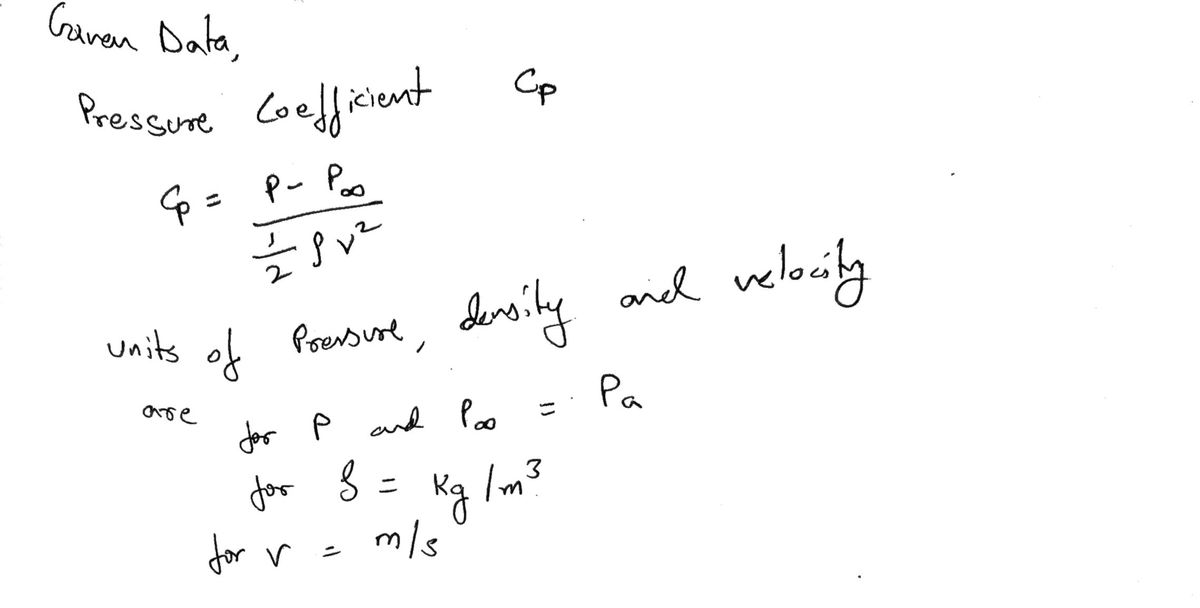 Given Data,
Pressure Coefficient Cp
Cp = P - P∞ / 1/2 ρ v²
units of Pressure, density and velocity
are for P and P∞ = Pa
for ρ = Kg/m³
for v = m/s